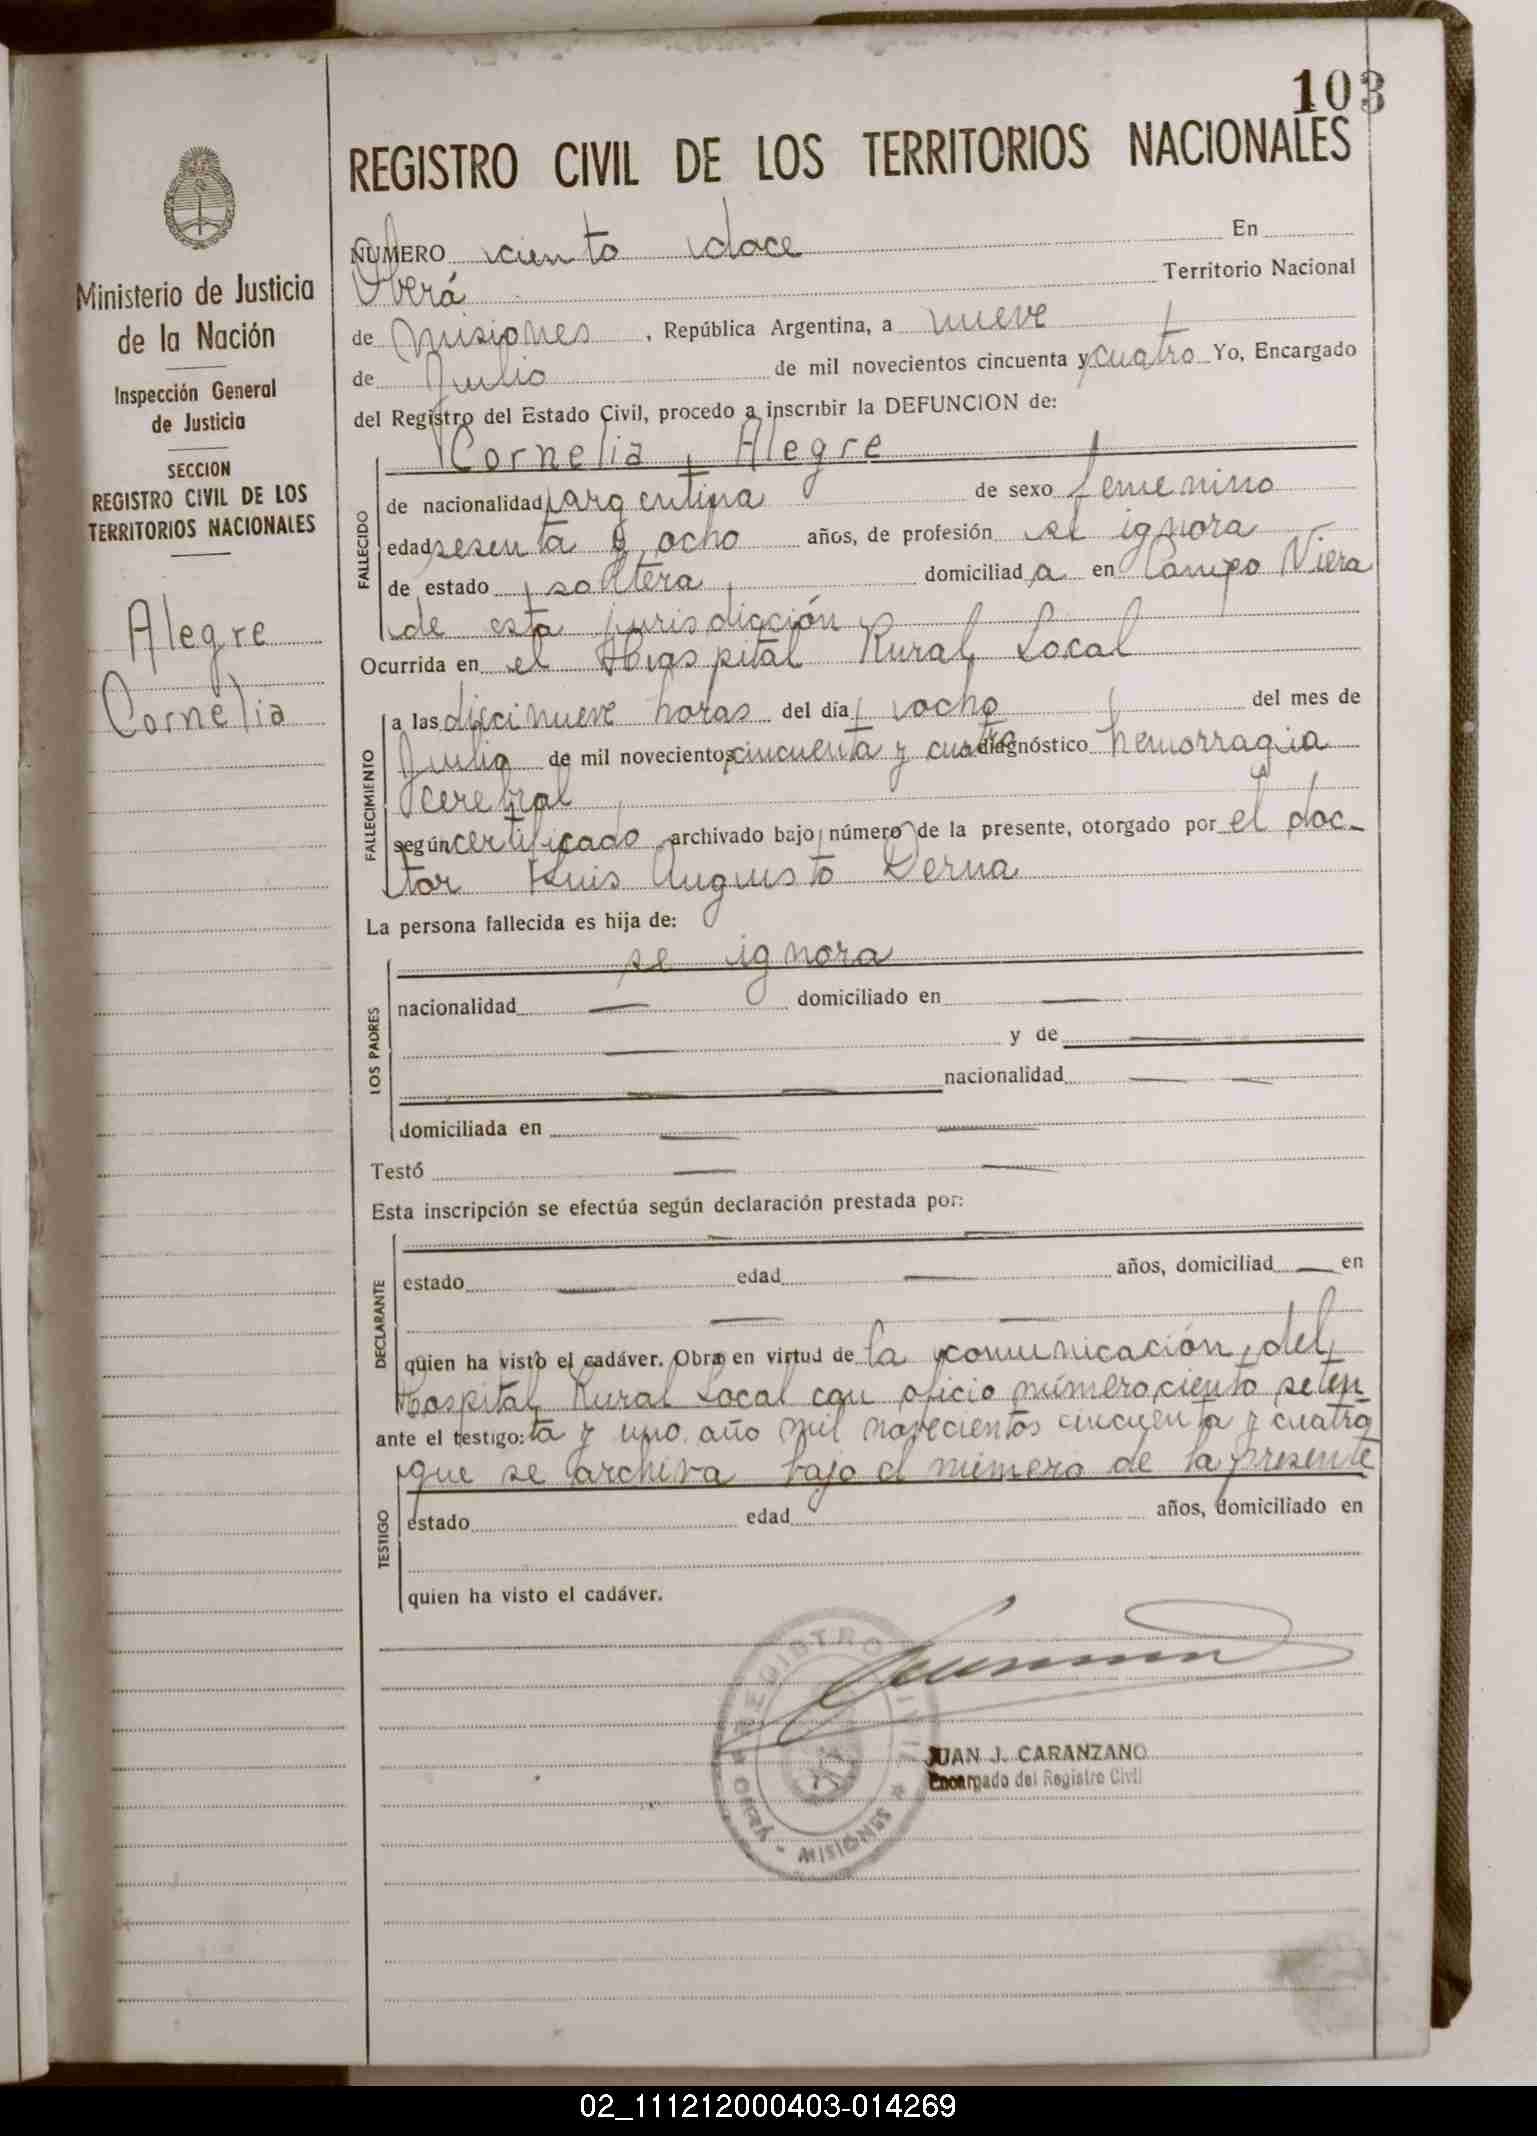 103
REGISTRO CIVIL DE LOS TERRITORIOS NACIONALES
Ministerio de Justicia
de la Nación
Inspección General
de Justicia
SECCION
REGISTRO CIVIL DE LOS
TERRITORIOS NACIONALES
Alegre
Cornelia
NUMERO ciento doce En
Oberá Territorio Nacional
de Misiones, República Argentina, a nueve
de Julio de mil novecientos cincuenta y cuatro Yo, Encargado
del Registro del Estado Civil, procedo a inscribir la DEFUNCION de:
Cornelia Alegre
FALLECIDO
de nacionalidad argentina de sexo femenino
edad sesenta y ocho años, de profesión se ignora
de estado soltera domiciliad a en Campo Viera
de esta jurisdicción
Ocurrida en el Hospital Rural Local
FALLECIMIENTO
a las diecinueve horas del día ocho del mes de
Julio de mil novecientos cincuenta y cuatro diagnóstico hemorragia
cerebral
según certificado archivado bajo número de la presente, otorgado por el doc-
tor Luis Augusto Derna
La persona fallecida es hija de:
se ignora
LOS PADRES
nacionalidad — domiciliado en —
— y de —
— — nacionalidad — —
domiciliada en — —
Testó — —
Esta inscripción se efectúa según declaración prestada por:
— —
DECLARANTE
estado — edad — años, domiciliad — en
— —
quien ha visto el cadáver. Obra en virtud de la comunicación del
Hospital Rural Local con oficio número ciento seten
ante el testigo: ta y uno año mil novecientos cincuenta y cuatro
que se archiva bajo el número de la presente
TESTIGO
estado edad años, domiciliado en
quien ha visto el cadáver.
REGISTRO CIVIL
OBERÁ - MISIONES
JUAN J. CARANZANO
Encargado del Registro Civil
02_111212000403-014269